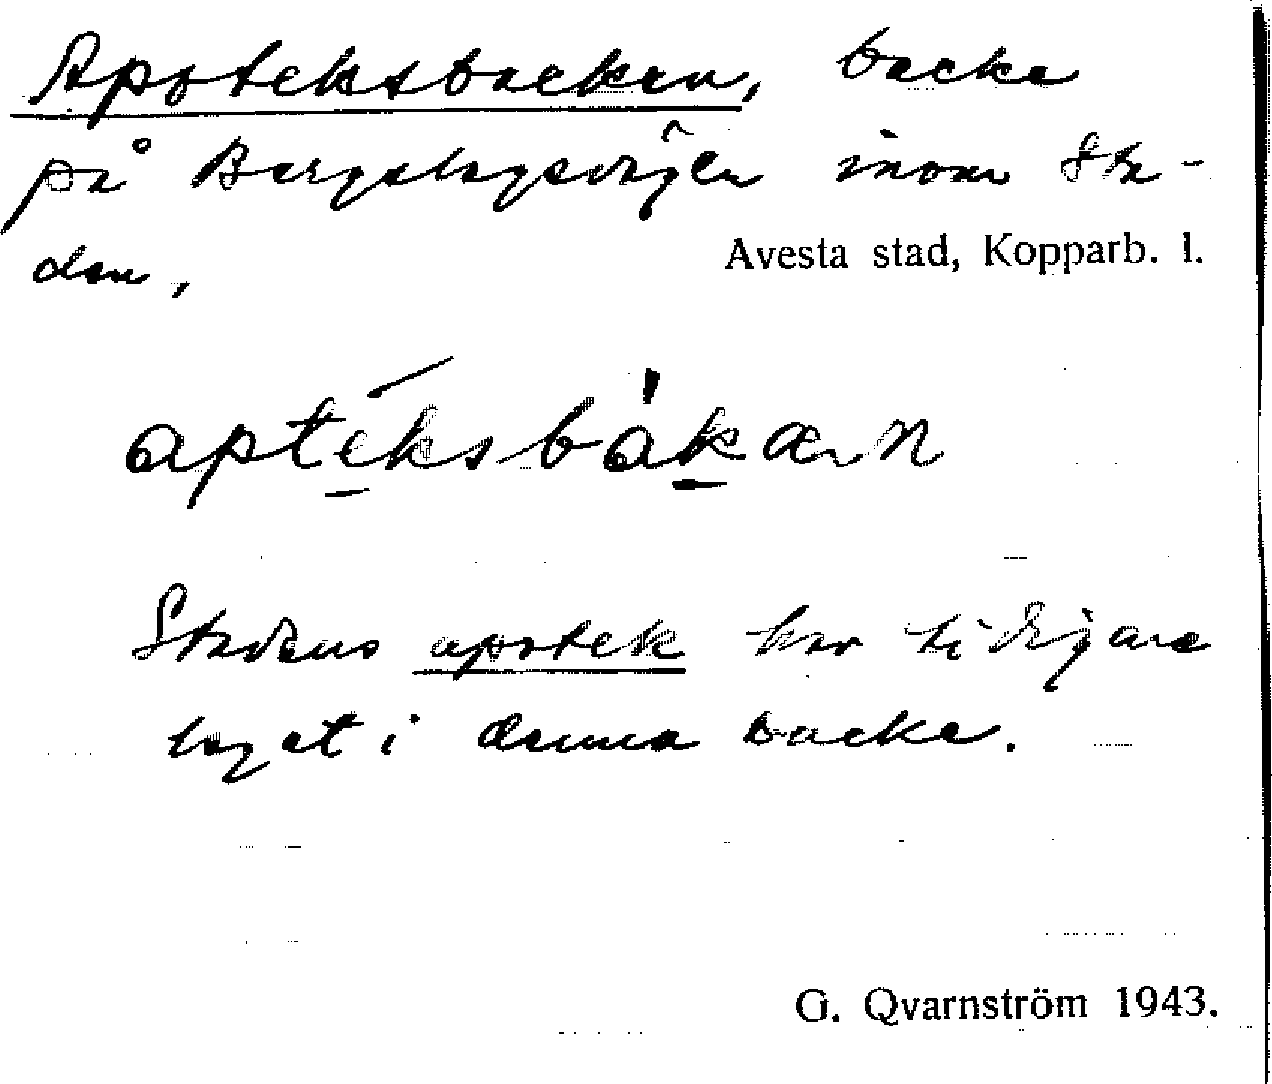 Apoteksbacken, backe
på Bergslagsvägen inom Sta-
den,
Avesta stad, Kopparb. l.
aptéksbàkæn
Stadens apotek har tidigare
legat i denna backe.
G. Qvarnström 1943.